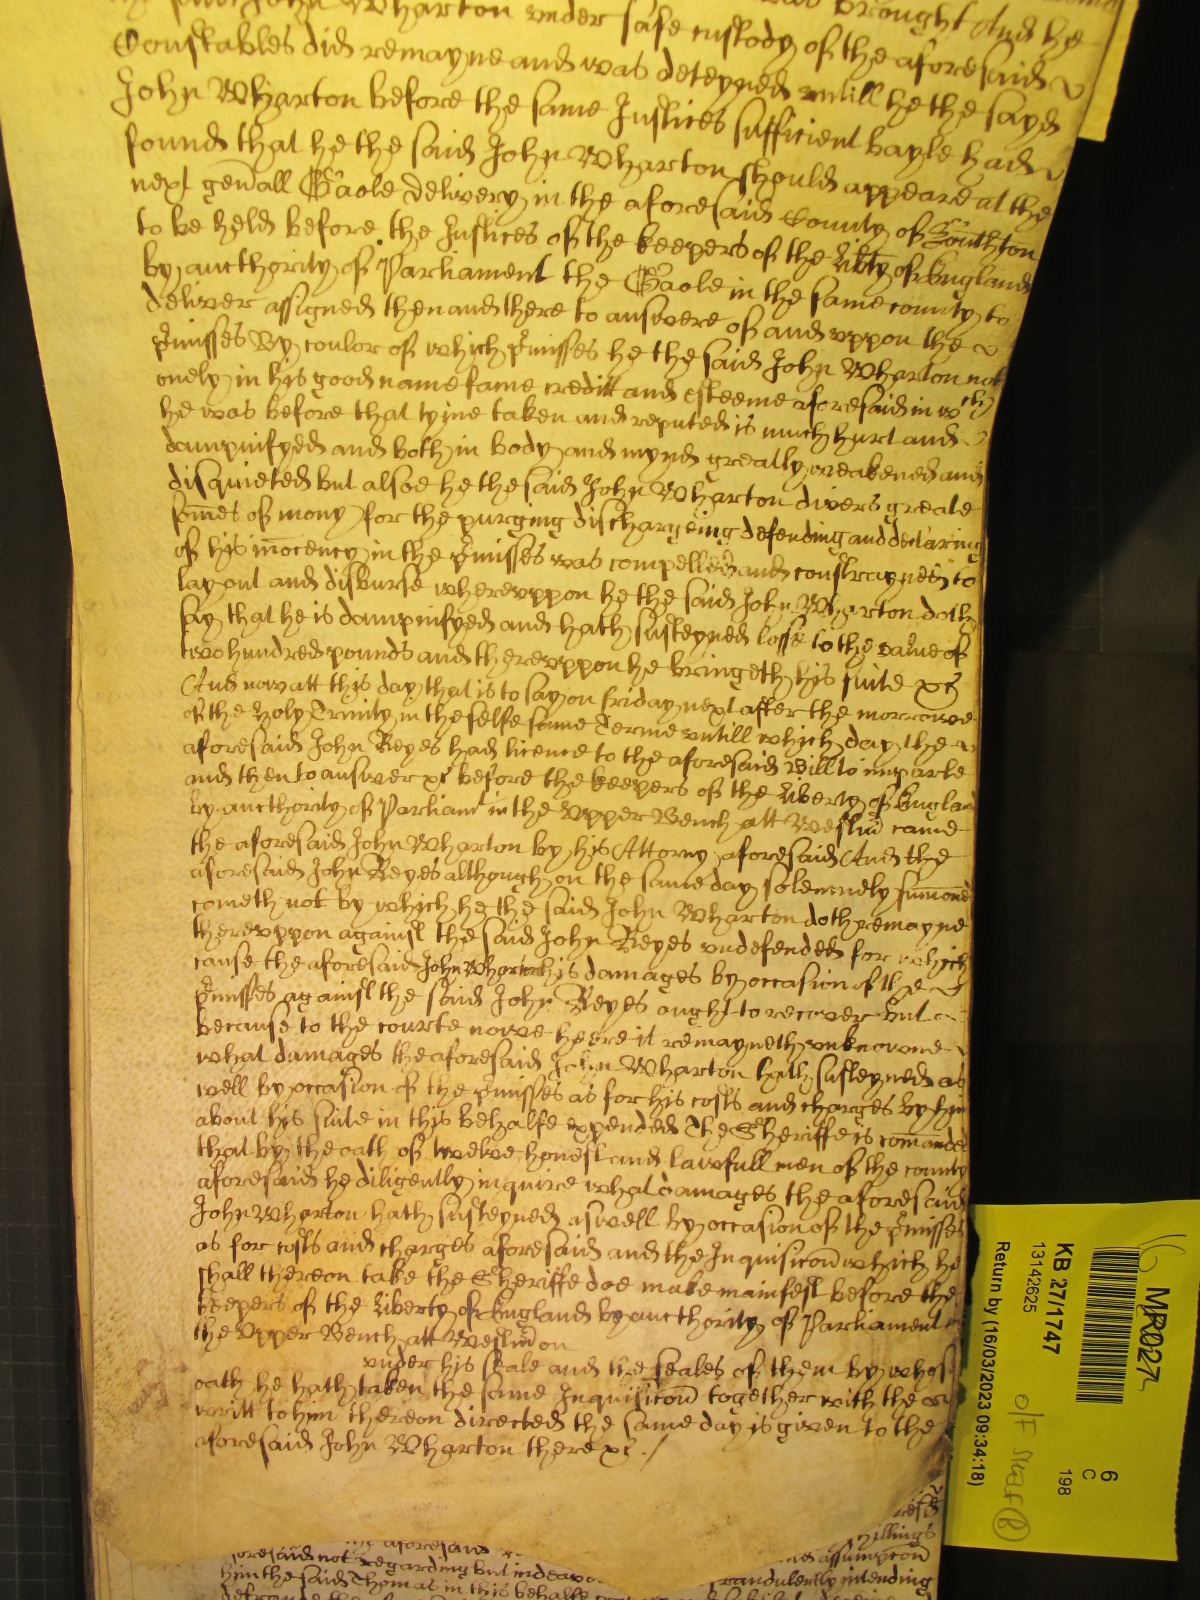 John Wharton under safe custody of the aforesaid
brought And he
Constables did remayne and was deteyned untill he the sayd
John Wharton before the same Justices sufficient bayle had
found that he the said John Wharton should appeare at the
next gen'all Gaole delivery in the aforesaid County of Southton
to be held before the Justices of the keepers of the lib'ty of England
by aucthority of Parliament the Gaole in the same county to
deliver assigned then and there to answere of and uppon the
p'misses By coulor of which p'misses he the said John Wharton not
onely in his good name fame creditt and esteeme aforesaid in wch
he was before that tyme taken and reputed is much hurt and
dampnifyed and both in body and mynd greatly weakened and
disquieted but alsoe he the said John Wharton divers greate
som'es of mony for the purging dischargeing defending and declaring
of his inocency in the p'misses was compelled and constrayned to
lay out and disburse whereuppon he the said John Wharton doth
say that he is dampnifyed and hath susteyned losse to the value of
two hundred pounds and thereuppon he bringeth his suite &c
And now att this day that is to say on friday next after the morrowe
of the holy Trinity in the selfe same Terme untill which day the
aforesaid John Keyes had licence to the aforesaid Bill to imparle
and then to answer &c before the keepers of the liberty of England
by aucthority of Parliamt in the Upper Bench att Westm' came
the aforesaid John Wharton by his Attorny aforesaid And the
aforesaid John Keyes although on the same day solemnely sum'oned
cometh not by which he the said John Wharton doth remayne
thereuppon against the said John Keyes undefended for which
cause the aforesaid John Wharton his damages by occasion of the
p'misses against the said John Keyes ought to recover But
because to the courte nowe heere it remayneth unknowne
what damages the aforesaid John Wharton hath susteyned as
well by occasion of the p'misses as for his costs and charges by him
about his suite in this behalfe expended The Sheriffe is com'anded
that by the oath of twelve honest and lawfull men of the county
aforesaid he diligently inquire what damages the aforesaid
John Wharton hath susteyned aswell by occasion of the p'misses
as for costs and charges aforesaid and the Inquisic'on which he
shall thereon take the Sheriffe doe make manifest before the
keepers of the liberty of England by aucthority of Parliament in
the Upper Bench att Westm' on
under his seale and the seales of them by whose
oath he hath taken the same Inquisic'on together with the
writt to him thereon directed the same day is given to the
aforesaid John Wharton there &c ./
aforesaid
foresaid not regarding but
him the said Thomas in this behalfe
hillings
and assumpc'on
fraudulently intending
MR027
KB 27/1747
13142625
Return by (16/03/2023 09:34:18)
6
C
198